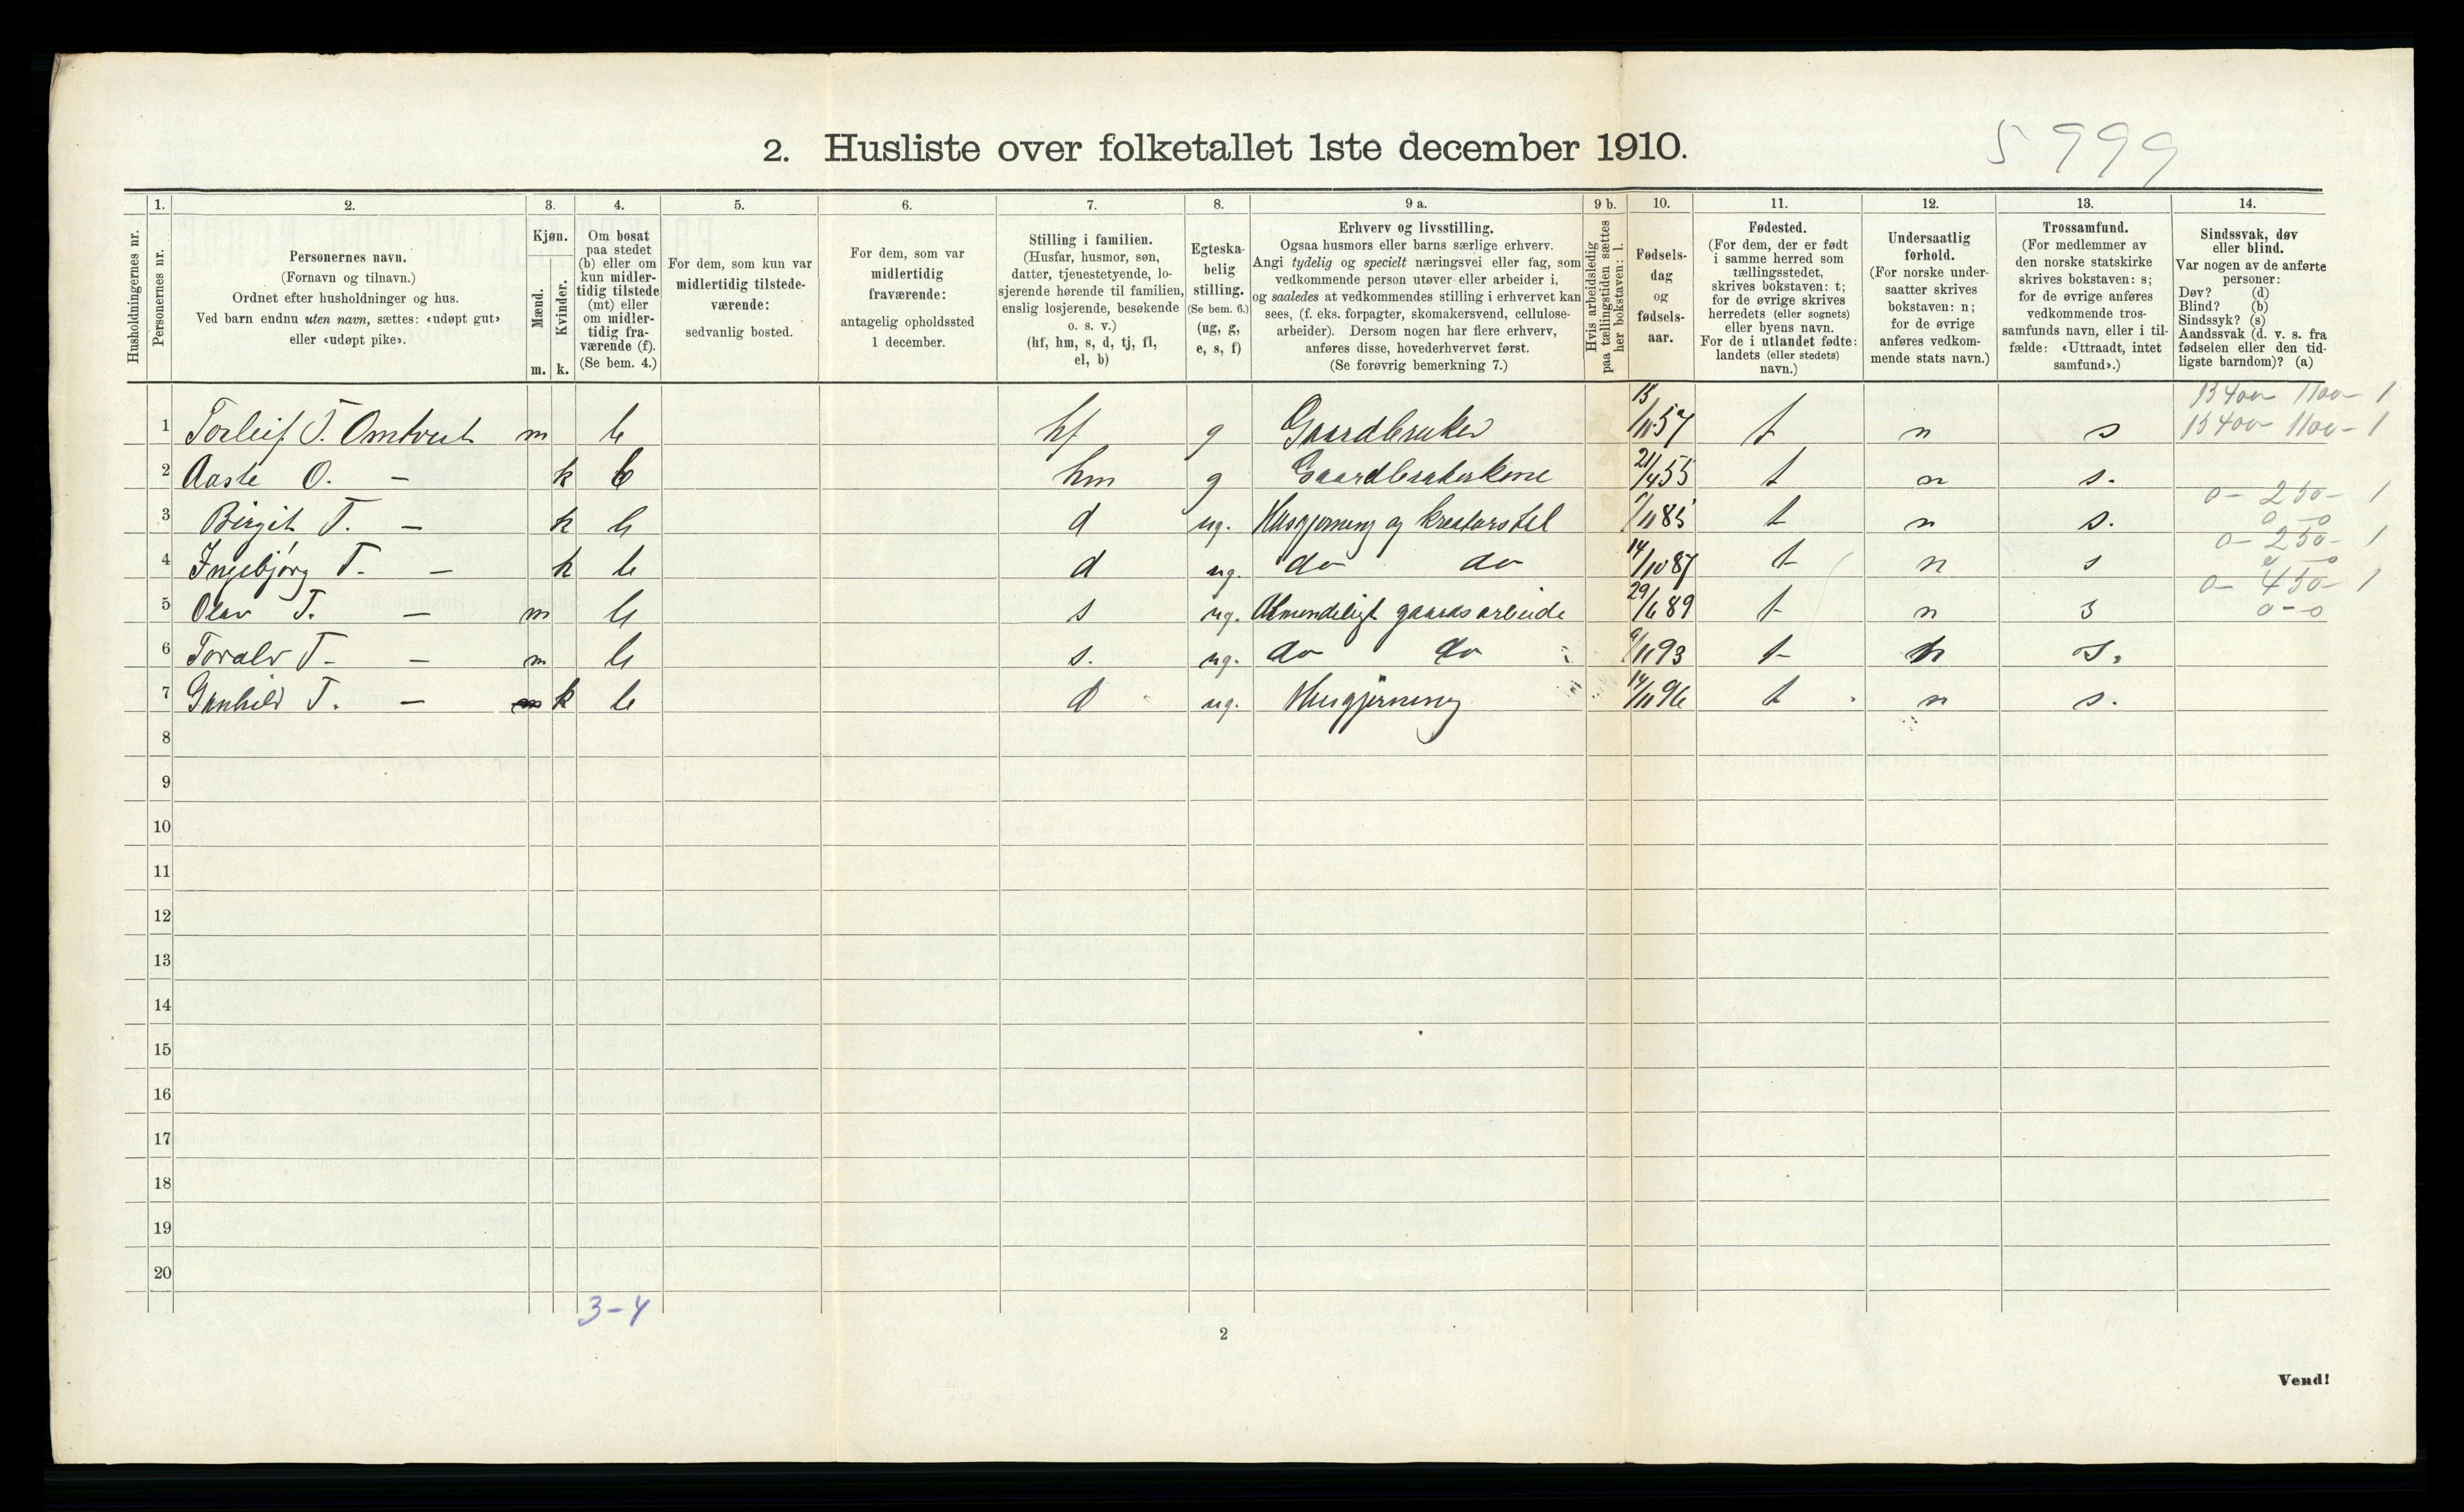 5 999
2. Husliste over folketallet 1ste december 1910.
Husholdningernes nr.
1. 2. 3. 4. 5. 6. 7. 8. 9 a. 9 b. 10. 11. 12. 13. 14.
Personernes nr.
Personernes navn.
(Fornavn og tilnavn.)
Ordnet efter husholdninger og hus.
Ved barn endnu uten navn, sættes: «udøpt gut»
eller «udøpt pike».
Kjøn.
Mænd.
Kvinder.
m. k.
Om bosat
paa stedet
(b) eller om
kun midler-
tidig tilstede
(mt) eller
om midler-
tidig fra-
værende (f).
(Se bem. 4.)
For dem, som kun var
midlertidig tilstede-
værende:
sedvanlig bosted.
For dem, som var
midlertidig
fraværende:
antagelig opholdssted
1 december.
Stilling i familien.
(Husfar, husmor, søn,
datter, tjenestetyende, lo-
sjerende hørende til familien,
enslig losjerende, besøkende
o. s. v.)
(hf, hm, s, d, tj, fl,
el, b)
Egteska-
belig
stilling.
(Se bem. 6.)
(ug, g,
e, s, f)
Erhverv og livsstilling.
Ogsaa husmors eller barns særlige erhverv.
Angi tydelig og specielt næringsvei eller fag, som
vedkommende person utøver eller arbeider i,
og saaledes at vedkommendes stilling i erhvervet kan
sees, (f. eks. forpagter, skomakersvend, cellulose-
arbeider). Dersom nogen har flere erhverv,
anføres disse, hovederhvervet først.
(Se forøvrig bemerkning 7.)
Hvis arbeidsledig
paa tællingstiden sættes
her bokstaven: l.
Fødsels-
dag
og
fødsels-
aar.
Fødested.
(For dem, der er født
i samme herred som
tællingsstedet,
skrives bokstaven: t;
for de øvrige skrives
herredets (eller sognets)
eller byens navn.
For de i utlandet fødte:
landets (eller stedets)
navn.)
Undersaatlig
forhold.
(For norske under-
saatter skrives
bokstaven: n;
for de øvrige
anføres vedkom-
mende stats navn.)
Trossamfund.
(For medlemmer av
den norske statskirke
skrives bokstaven: s;
for de øvrige anføres
vedkommende tros-
samfunds navn, eller i til-
fælde: «Uttraadt, intet
samfund».)
Sindssvak, døv
eller blind.
Var nogen av de anførte
personer:
Døv? (d)
Blind? (b)
Sindssyk? (s)
Aandssvak (d. v. s. fra
fødselen eller den tid-
ligste barndom)? (a)
1 Torleif T. Omtvedt m b hf g Gaardbruker t n s
2 Aaste O. — k b hm g Gaardbrukerkone 21/4 55 t n s.
3 Birgit T. — k b d ug. Husgjerning og kreaturstel t n s. 0 - 250 - 1
0 - 0
4 Ingebjørg T. — k b d ug. do do 14/10 87 t n s 0 - 250 - 1
5 Olav T. — m b s ug. Almindeligt gaardsarbeide 29/6 89 t n s 0 - 450 - 1
0 - 0
6 Toralv T. — m b s. ug. do do t n s.
7 Gunhild T. — k b d ug. Husgjerning 14/11 96 t n s.
8
9
10
11
12
13
14
15
16
17
18
19
20
3-4
2
Vend!